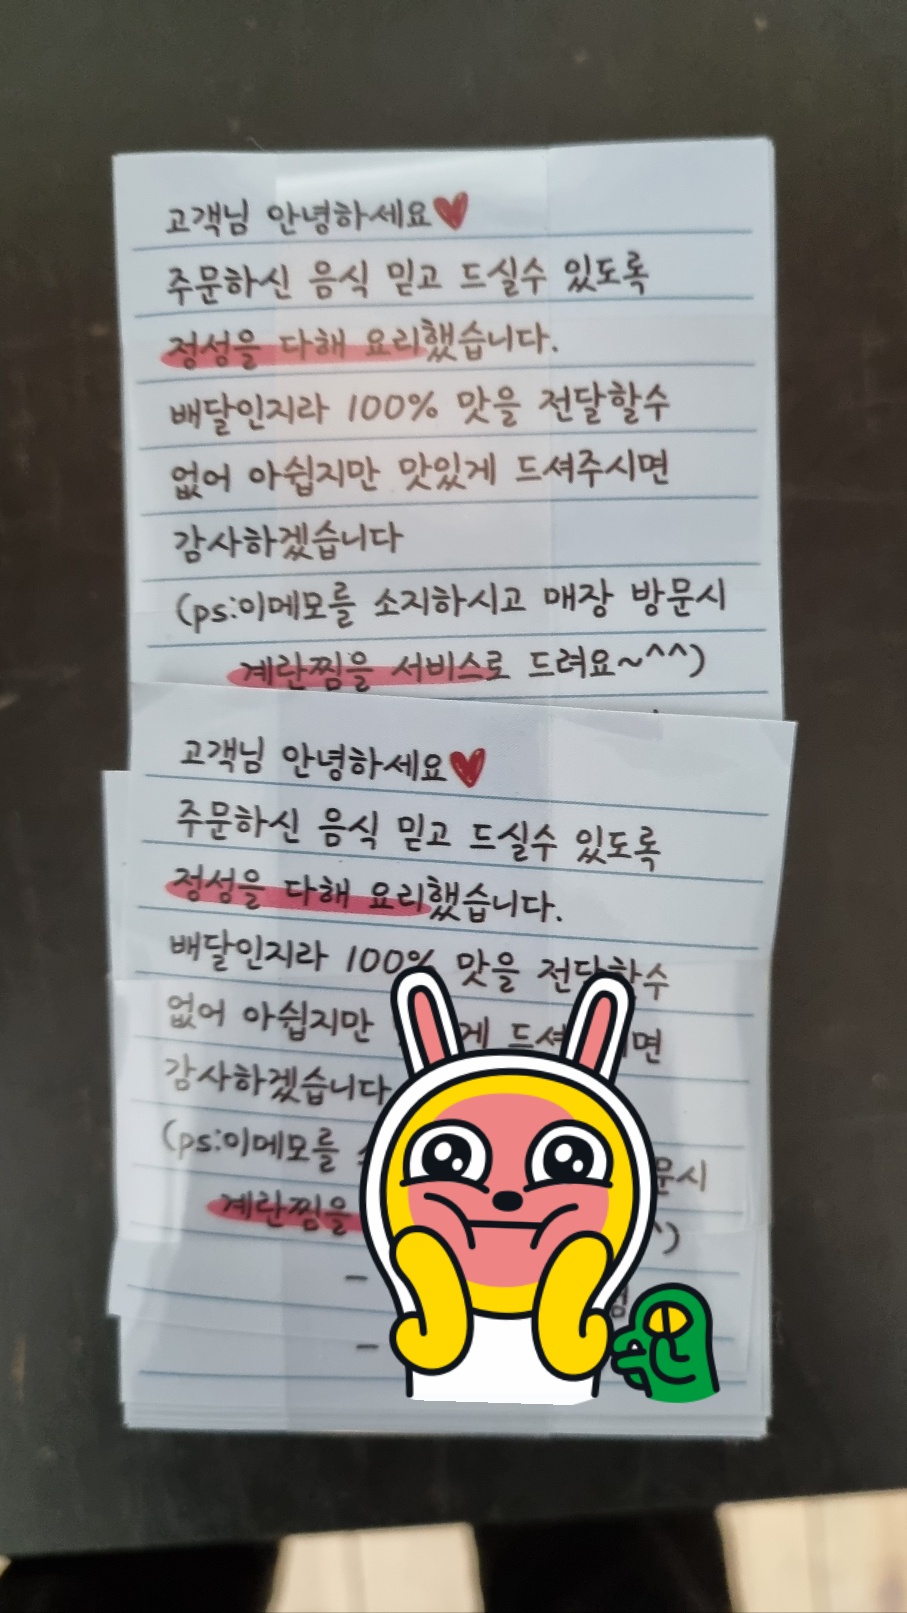 고객님 안녕하세요♥
주문하신 음식 믿고 드실수 있도록
정성을 다해 요리했습니다.
배달인지라 100% 맛을 전달할수
없어 아쉽지만 맛있게 드셔주시면
감사하겠습니다
(ps:이메모를 소지하시고 매장 방문시
계란찜을 서비스로 드려요~^^)
고객님 안녕하세요♥
주문하신 음식 믿고 드실수 있도록
정성을 다해 요리했습니다.
배달인지라 100% 맛을 전달할수
없어 아쉽지만 게 드셔 면
감사하겠습니다
(ps:이메모를 문시
계란찜을 ^)
-
-